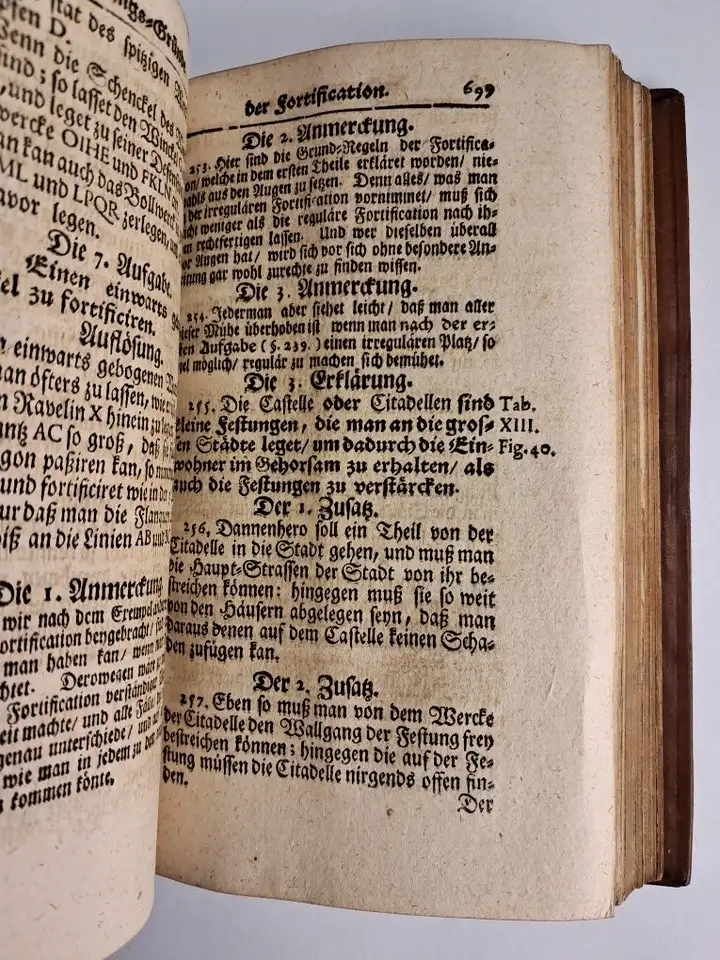 des spitzigen
pfen D.
Wenn die Schenckel des
sind; so lasset den
und leget zu seiner
wercke OIHE und FKLN
kan auch das Bollwerck
ML und LPQR zerlegen/
avor legen.
Die 7. Aufgabe.
Einen einwarts
zu fortificiren.
Auflösung.
einwarts gebogenen
man öfters zu lassen,
Ravelin X hinein zu
AC so groß, daß
paßiren kan, so
und fortificiret wie in
nur daß man die
biß an die Linien AB und
Die 1. Anmerckung
wir nach dem Exempel
beygebracht/
man haben kan/ wenn
Derowegen
Fortification verständiger
machte/ und alle
genau unterschiede/ und
wie man in jedem zu
kommen könte.
der Fortification. 699
Die 2. Anmerckung.
253. Hier sind die Grund-Regeln der Fortifica-
on/ welche in dem ersten Theile erkläret worden/ nie-
mahls aus den Augen zu setzen. Denn alles/ was man
der irregulären Fortification vornimmet/ muß sich
nicht weniger als die reguläre Fortification nach ih-
en rechtfertigen lassen. Und wer dieselben überall
vor Augen hat/ wird sich vor sich ohne besondere An-
eitung gar wohl zurechte zu finden wissen.
Die 3. Anmerckung.
254. Jederman aber siehet leicht/ daß man aller
dieser Mühe überhoben ist wenn man nach der er-
sten Aufgabe (§. 239.) einen irregulären Platz/ so
viel möglich/ regulär zu machen sich bemühet.
Die 3. Erklärung.
255. Die Castelle oder Citadellen sind Tab.
kleine Festungen, die man an die gros- XIII.
sen Städte leget/ um dadurch die Ein- Fig. 40.
wohner im Gehorsam zu erhalten/ als
auch die Festungen zu verstärcken.
Der 1. Zusatz.
256. Dannenhero soll ein Theil von der
Citadelle in die Stadt gehen, und muß man
die Haupt-Strassen der Stadt von ihr be-
streichen können: hingegen muß sie so weit
von den Häusern abgelegen seyn, daß man
daraus denen auf dem Castelle keinen Scha-
den zufügen kan.
Der 2. Zusatz.
257. Eben so muß man von dem Wercke
der Citadelle den Wallgang der Festung frey
bestreichen können; hingegen die auf der Fe-
stung müssen die Citadelle nirgends offen fin-
den.
Der